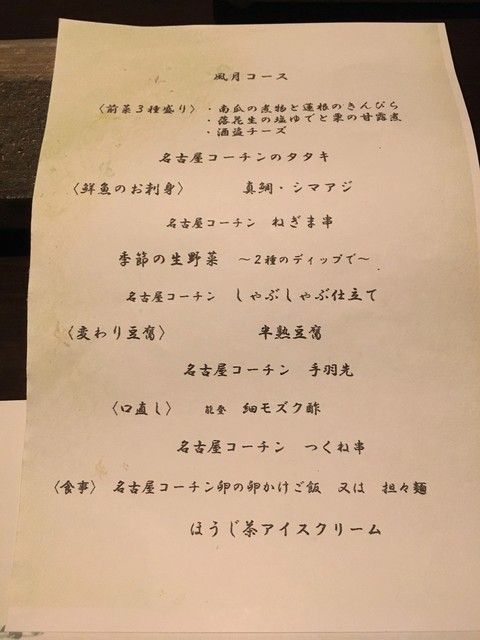 風月コース
〈前菜3種盛り〉 ・南瓜の煮物と蓮根のきんぴら
・落花生の塩ゆでと栗の甘露煮
・酒盗チーズ
名古屋コーチンのタタキ
〈鮮魚のお刺身〉 真鯛・シマアジ
名古屋コーチン ねぎま串
季節の生野菜 ～2種のディップで～
名古屋コーチン しゃぶしゃぶ仕立て
〈変わり豆腐〉 半熟豆腐
名古屋コーチン 手羽先
〈口直し〉 能登 細モズク酢
名古屋コーチン つくね串
〈食事〉 名古屋コーチン卵の卵かけご飯 又は 担々麺
ほうじ茶アイスクリーム